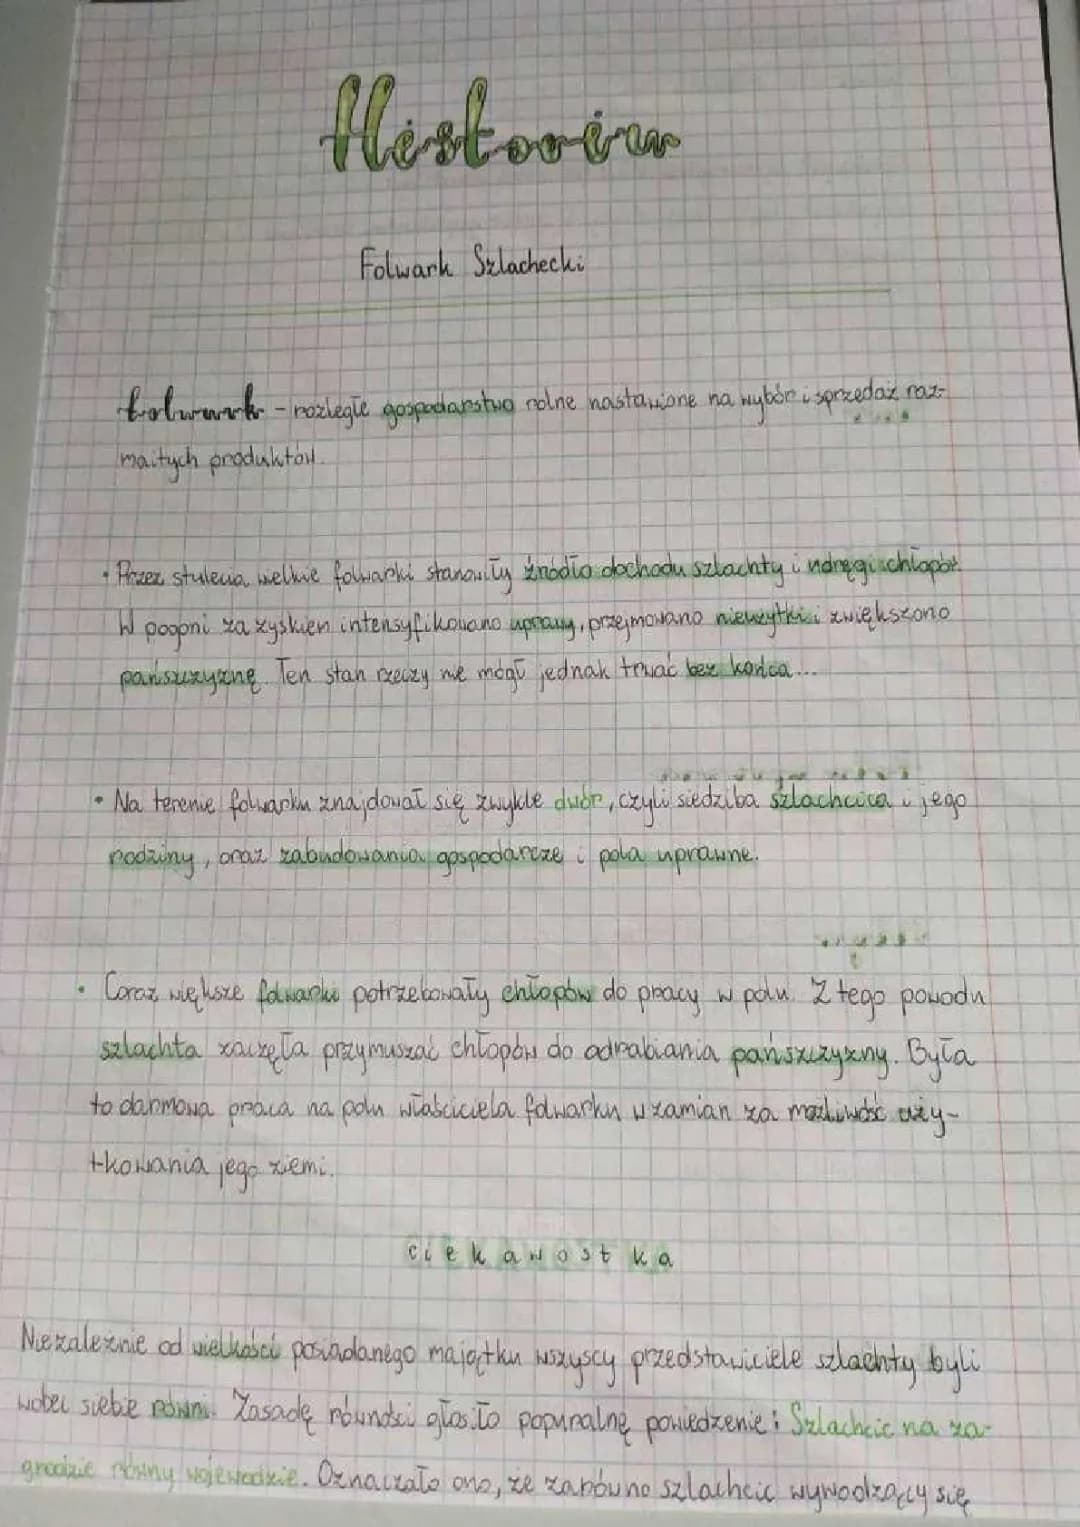 Historia
Folwark Szlachecki
Folwark - rozległe gospodarstwo rolne nastawione na wybór i sprzedaż roz-
maitych produktów.
• Przez stulecia wielkie folwarki stanowiły źródło dochodu szlachty i udręgi chłopów.
W pogoni za zyskiem intensyfikowano uprawy, przejmowano nieużytki i zwiększono
pańszczyznę. Ten stan rzeczy nie mógł jednak trwać bez końca...
• Na terenie folwarku znajdował się zwykle dwór, czyli siedziba szlachcica i jego
rodziny, oraz zabudowania gospodarcze i pola uprawne.
• Coraz większe folwarki potrzebowały chłopów do pracy w polu. Z tego powodu
szlachta zaczęła przymuszać chłopów do odrabiania pańszczyzny. Była
to darmowa praca na polu właściciela folwarku w zamian za możliwość uży-
tkowania jego ziemi.
ciekawostka
Niezależnie od wielkości posiadanego majątku wszyscy przedstawiciele szlachty byli
wobec siebie równi. Zasadę równości głosiło popuralnę powiedzenie: Szlachcic na za-
grodzie równy wojewodzie. Oznaczało ono, że zarówno szlachcic wywodzący się